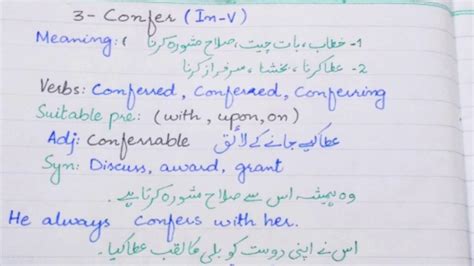 3- Confer (In-V)
Meaning: ( 1- خطاب، بات چیت، صلاح مشورہ کرنا
2- عطا کرنا، بخشنا، سرفراز کرنا
Verbs: Conferred, Conferred, Conferring
Suitable pre: (with, upon, on)
Adj: Conferrable عطا کیے جانے کے لائق
Syn: Discuss, award, grant
وہ ہمیشہ اس سے صلاح مشورہ کرتا ہے۔
He always confers with her.
اس نے اپنی دوست کو بلی کا لقب عطا کیا۔